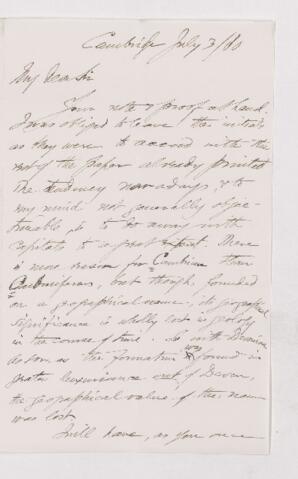 Cambridge July 3/80
My Dear Sir
Your note & proof at hand.
I was obliged to leave the initials
as they were to accord with the
rest of the paper already printed
The tendency nowadays & to
my mind not generally objec-
tionable is to do away with
capitals to a great extent. There
is more reason for Cambrian than
Carboniferous, but though founded
on a geographical name, its geographical
significance is wholly lost in geology
in the course of time. So with Devonian
as soon as the formation was found in
greater luxuriance out of Devon,
the geographical value of the name
was lost
I will have, as you once